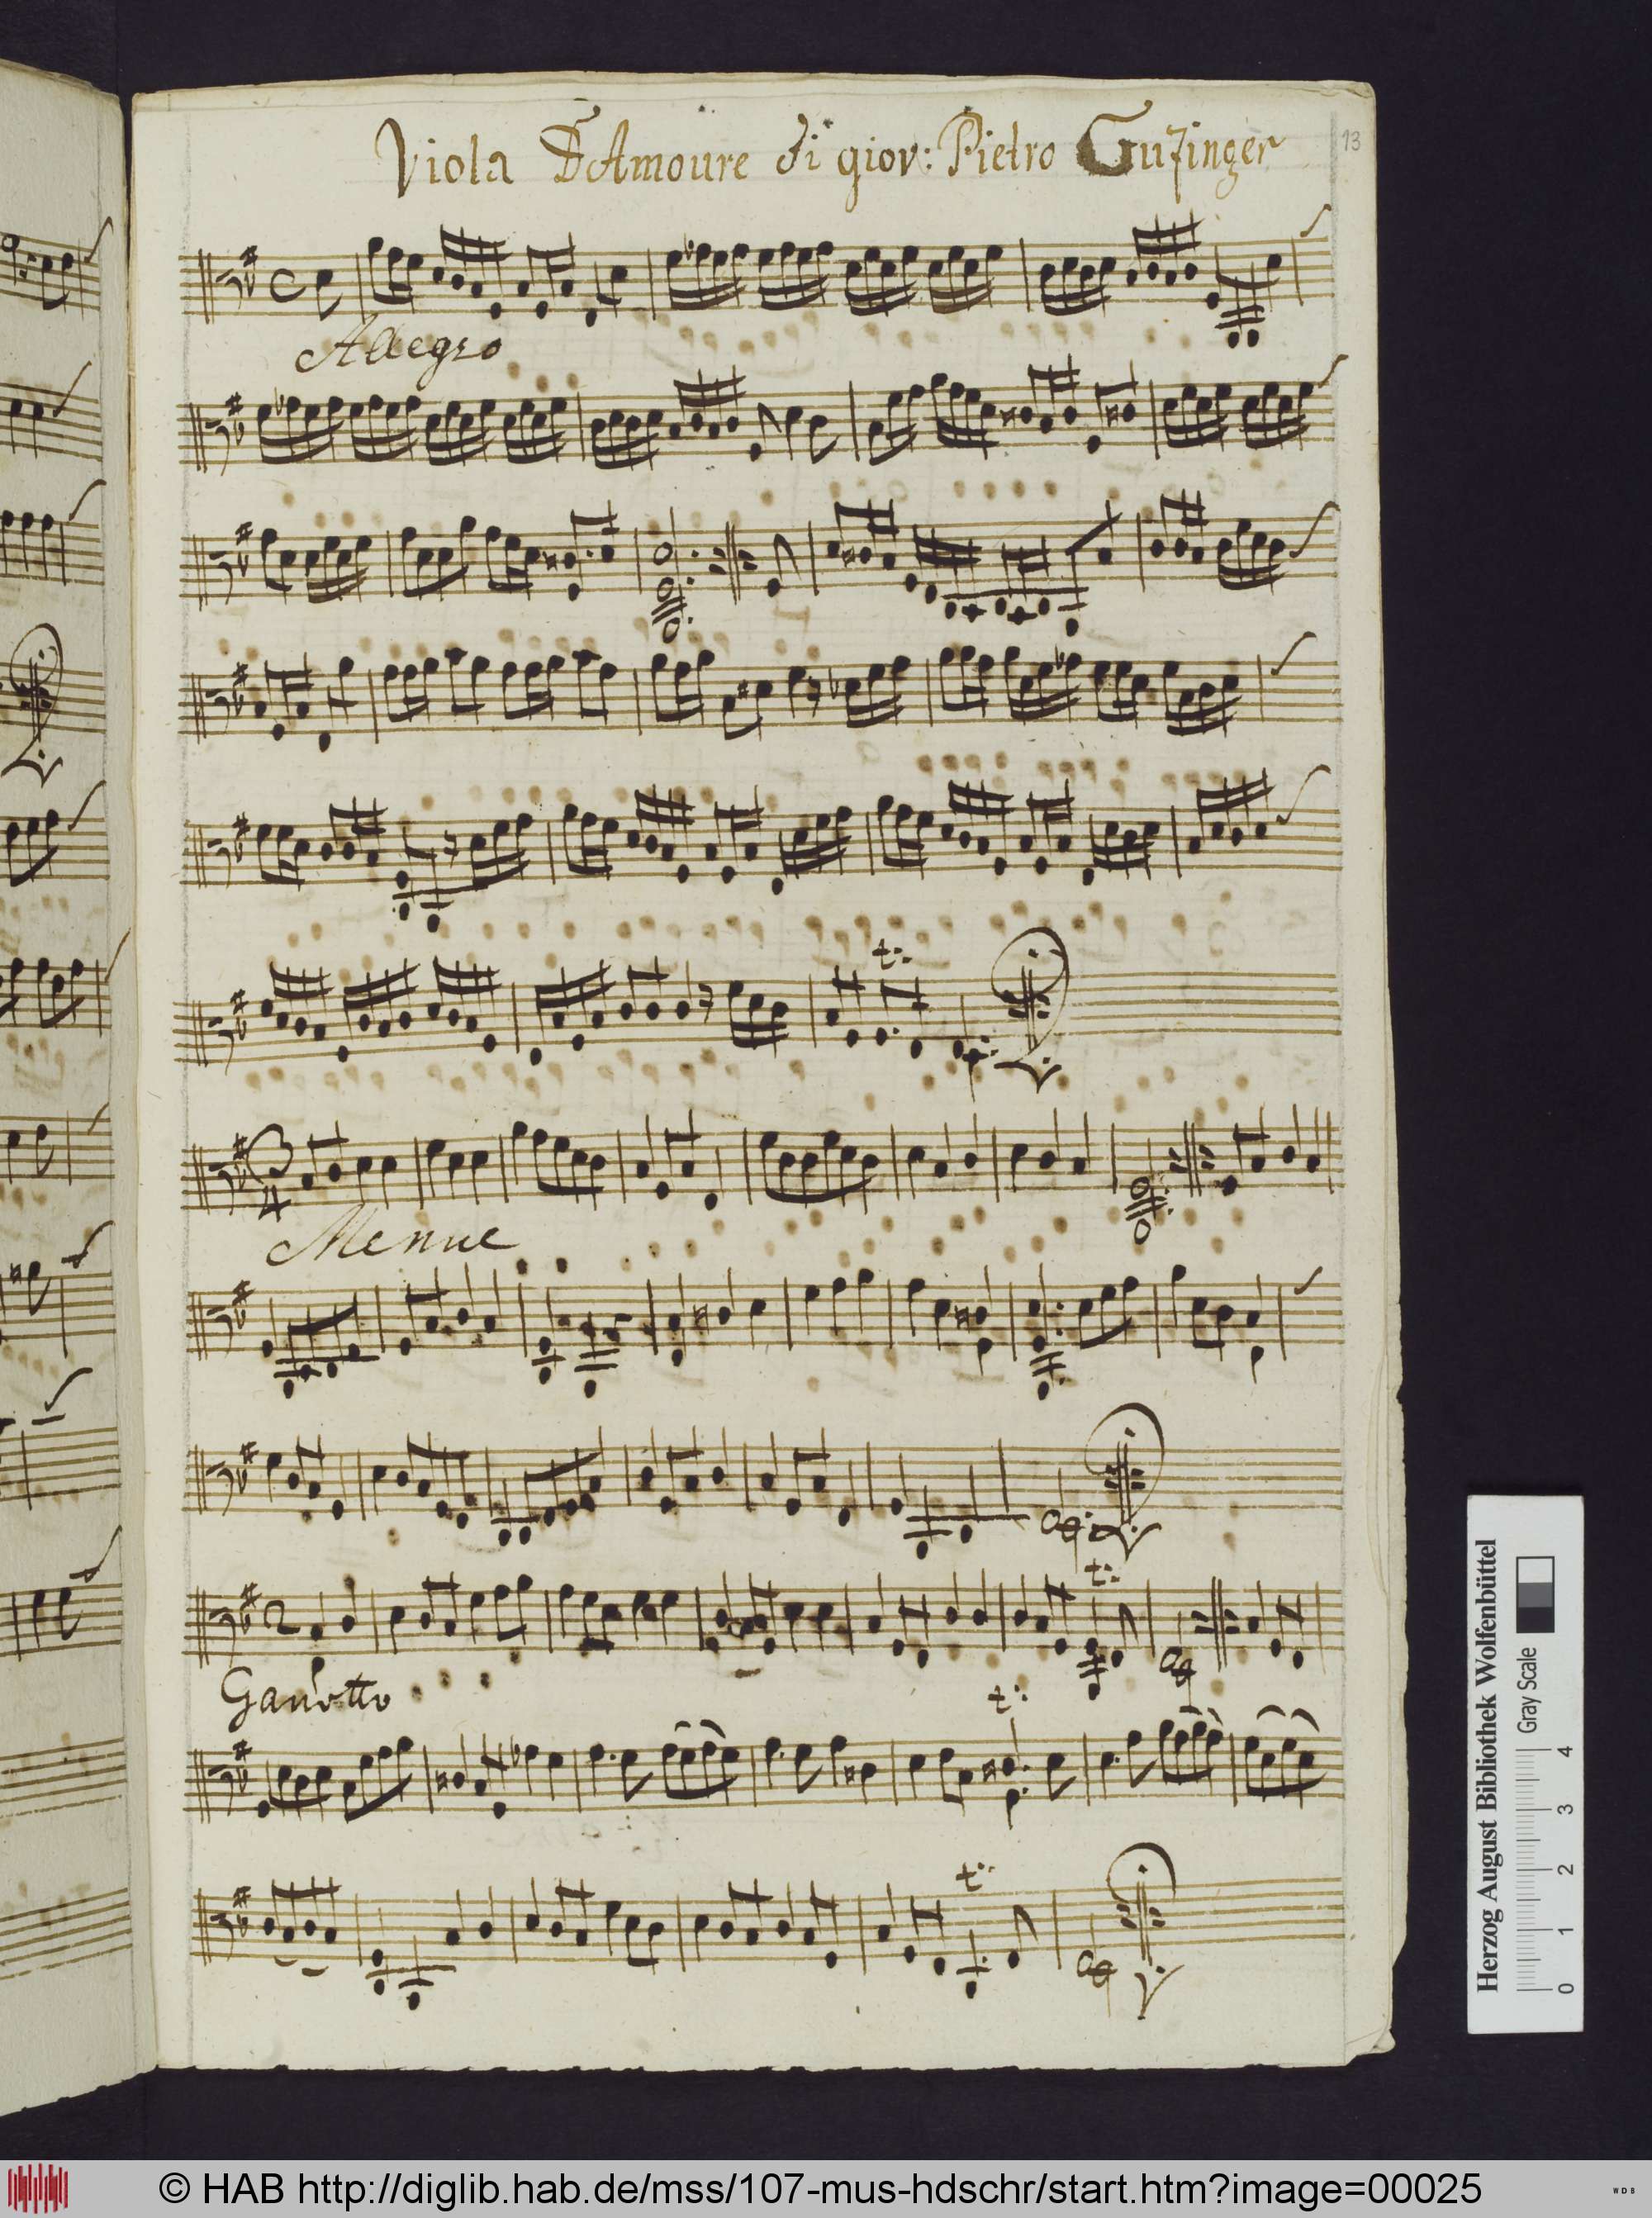 Viola D'Amoure di giov: Pietro Guzinger
13
Allegro
Menue
Gavotto
Herzog August Bibliothek Wolfenbüttel
Gray Scale
0 1 2 3 4
© HAB http://diglib.hab.de/mss/107-mus-hdschr/start.htm?image=00025
WDB